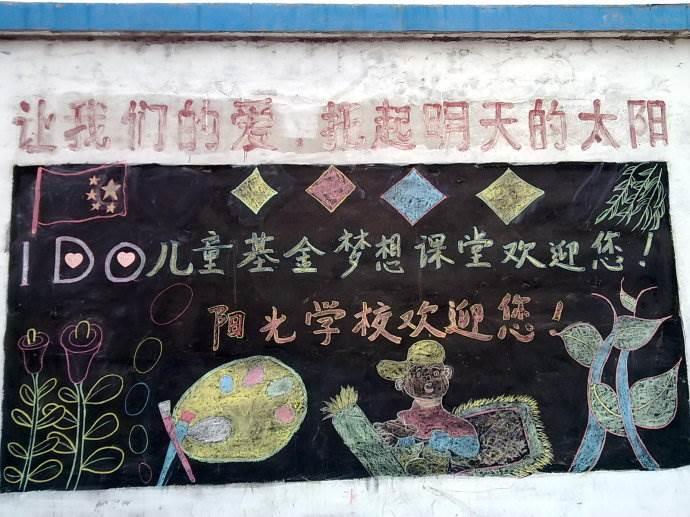 让我们的爱，托起明天的太阳
I DO儿童基金梦想课堂欢迎您！
阳光学校欢迎您！